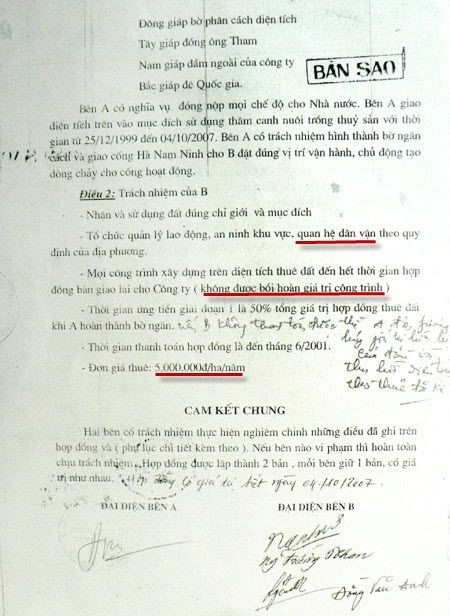 Đông giáp bờ phân cách diện tích
Tây giáp đồng ông Tham
Nam giáp đầm ngoài của công ty
BẢN SAO
Bắc giáp đê Quốc gia.
Bên A có nghĩa vụ đóng nộp mọi chế độ cho Nhà nước. Bên A giao
diện tích trên vào mục đích sử dụng thâm canh nuôi trồng thuỷ sản với thời
gian từ 25/12/1999 đến 04/10/2007. Bên A có trách nhiệm hình thành bờ ngăn
cách và giao cống Hà Nam Ninh cho B đặt đúng vị trí vận hành, chủ động tạo
dòng chảy cho cống hoạt động.
Điều 2: Trách nhiệm của B
- Nhân và sử dụng đất đúng chỉ giới và mục đích
- Tổ chức quản lý lao động, an ninh khu vực, quan hệ dân vận theo quy
định của địa phương.
- Mọi công trình xây dựng trên diện tích thuê đất đến hết thời gian hợp
đồng bàn giao lai cho Công ty ( không được bồi hoàn giá trị công trình )
- Thời gian ứng tiền giai đoạn 1 là 50% tổng giá trị hợp đồng thuê đất
khi A hoàn thành bờ ngăn. nếu B không thanh toán được thì A
- Thời gian thanh toán hợp đồng là đến tháng 6/2001.
- Đơn giá thuê: 5.000.000đ/ha/năm
CAM KẾT CHUNG
Hai bên có trách nhiệm thực hiện nghiêm chỉnh những điều đã ghi trên
hợp đồng và ( phụ lục chi tiết kèm theo ). Nếu bên nào vi phạm thì hoàn toàn
chịu trách nhiệm. Hợp đồng được lập thành 2 bản , mỗi bên giữ 1 bản, có giá
trị như nhau. Hợp đồng có giá trị hết ngày 04/10/2007.
ĐẠI DIỆN BÊN A
ĐẠI DIỆN BÊN B
Đồng Văn Anh